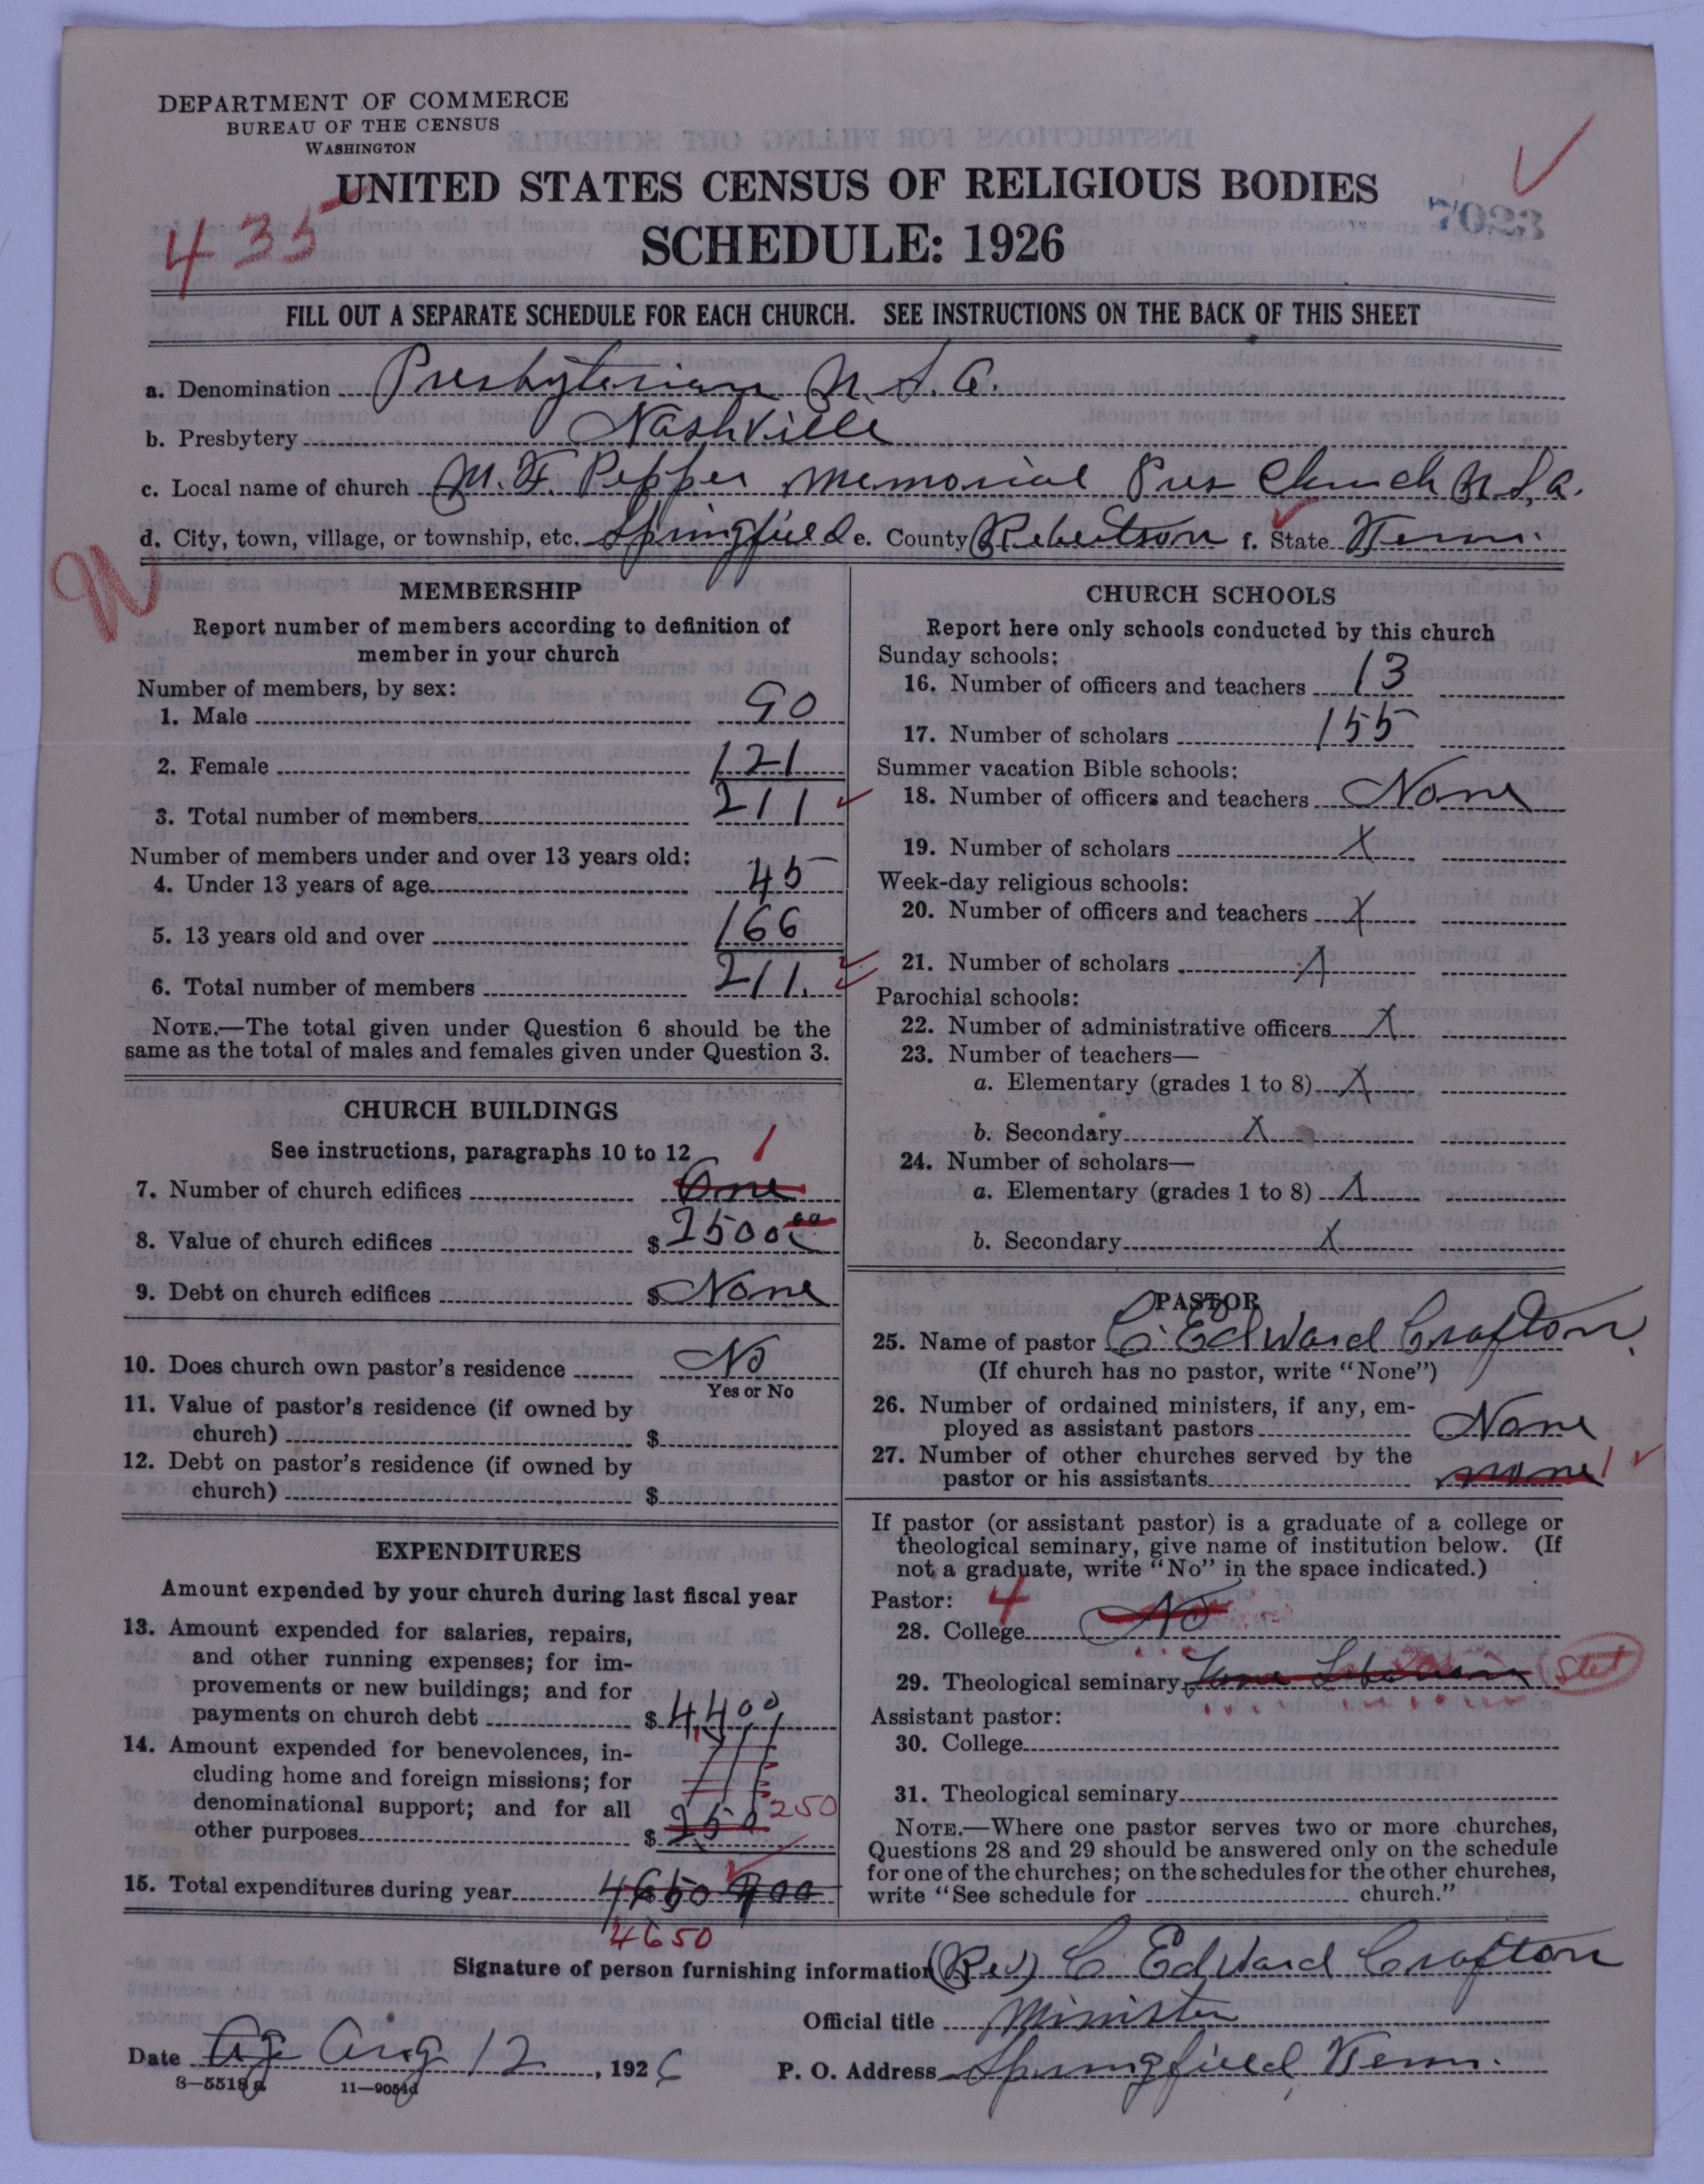 DEPARTMENT OF COMMERCE
BUREAU OF THE CENSUS
WASHINGTON
UNITED STATES CENSUS OF RELIGIOUS BODIES
435
7023
SCHEDULE: 1926
FILL OUT A SEPARATE SCHEDULE FOR EACH CHURCH. SEE INSTRUCTIONS ON THE BACK OF THIS SHEET
a. Denomination Presbyterian U.S.A.
b. Presbytery Nashville
c. Local name of church M. F. Pepper Memorial Pres Church U.S.A.
d. City, town, village, or township, etc. Springfield e. County Robertson f. State Tenn.
MEMBERSHIP
Report number of members according to definition of
member in your church
Number of members, by sex:
1. Male 90
2. Female 121
3. Total number of members 211
Number of members under and over 13 years old:
4. Under 13 years of age 45
5. 13 years old and over 166
6. Total number of members 211.
NOTE.—The total given under Question 6 should be the
same as the total of males and females given under Question 3.
CHURCH BUILDINGS
See instructions, paragraphs 10 to 12
1
7. Number of church edifices One
8. Value of church edifices $ 25000
9. Debt on church edifices $ None
10. Does church own pastor's residence No
Yes or No
11. Value of pastor's residence (if owned by
church) $
12. Debt on pastor's residence (if owned by
church) $
EXPENDITURES
Amount expended by your church during last fiscal year
13. Amount expended for salaries, repairs,
and other running expenses; for im-
provements or new buildings; and for
payments on church debt $ 4,400
14. Amount expended for benevolences, in-
cluding home and foreign missions; for
denominational support; and for all
other purposes $ 250 250
15. Total expenditures during year 4650 900
4650
CHURCH SCHOOLS
Report here only schools conducted by this church
Sunday schools:
16. Number of officers and teachers 13
17. Number of scholars 155
Summer vacation Bible schools:
18. Number of officers and teachers None
19. Number of scholars X
Week-day religious schools:
20. Number of officers and teachers X
21. Number of scholars X
Parochial schools:
22. Number of administrative officers X
23. Number of teachers—
a. Elementary (grades 1 to 8) X
b. Secondary X
24. Number of scholars—
a. Elementary (grades 1 to 8) X
b. Secondary X
PASTOR
25. Name of pastor C. Edward Crafton
(If church has no pastor, write "None")
26. Number of ordained ministers, if any, em-
ployed as assistant pastors None
27. Number of other churches served by the
pastor or his assistants none 1
If pastor (or assistant pastor) is a graduate of a college or
theological seminary, give name of institution below. (If
not a graduate, write "No" in the space indicated.)
Pastor: 4
28. College No
29. Theological seminary Stet
Assistant pastor:
30. College
31. Theological seminary
NOTE.—Where one pastor serves two or more churches,
Questions 28 and 29 should be answered only on the schedule
for one of the churches; on the schedules for the other churches,
write "See schedule for church."
Signature of person furnishing information (Rev) C Edward Crafton
Official title Minister
Date Aug 12, 1926 P. O. Address Springfield Tenn.
8—5518a 11—9054d